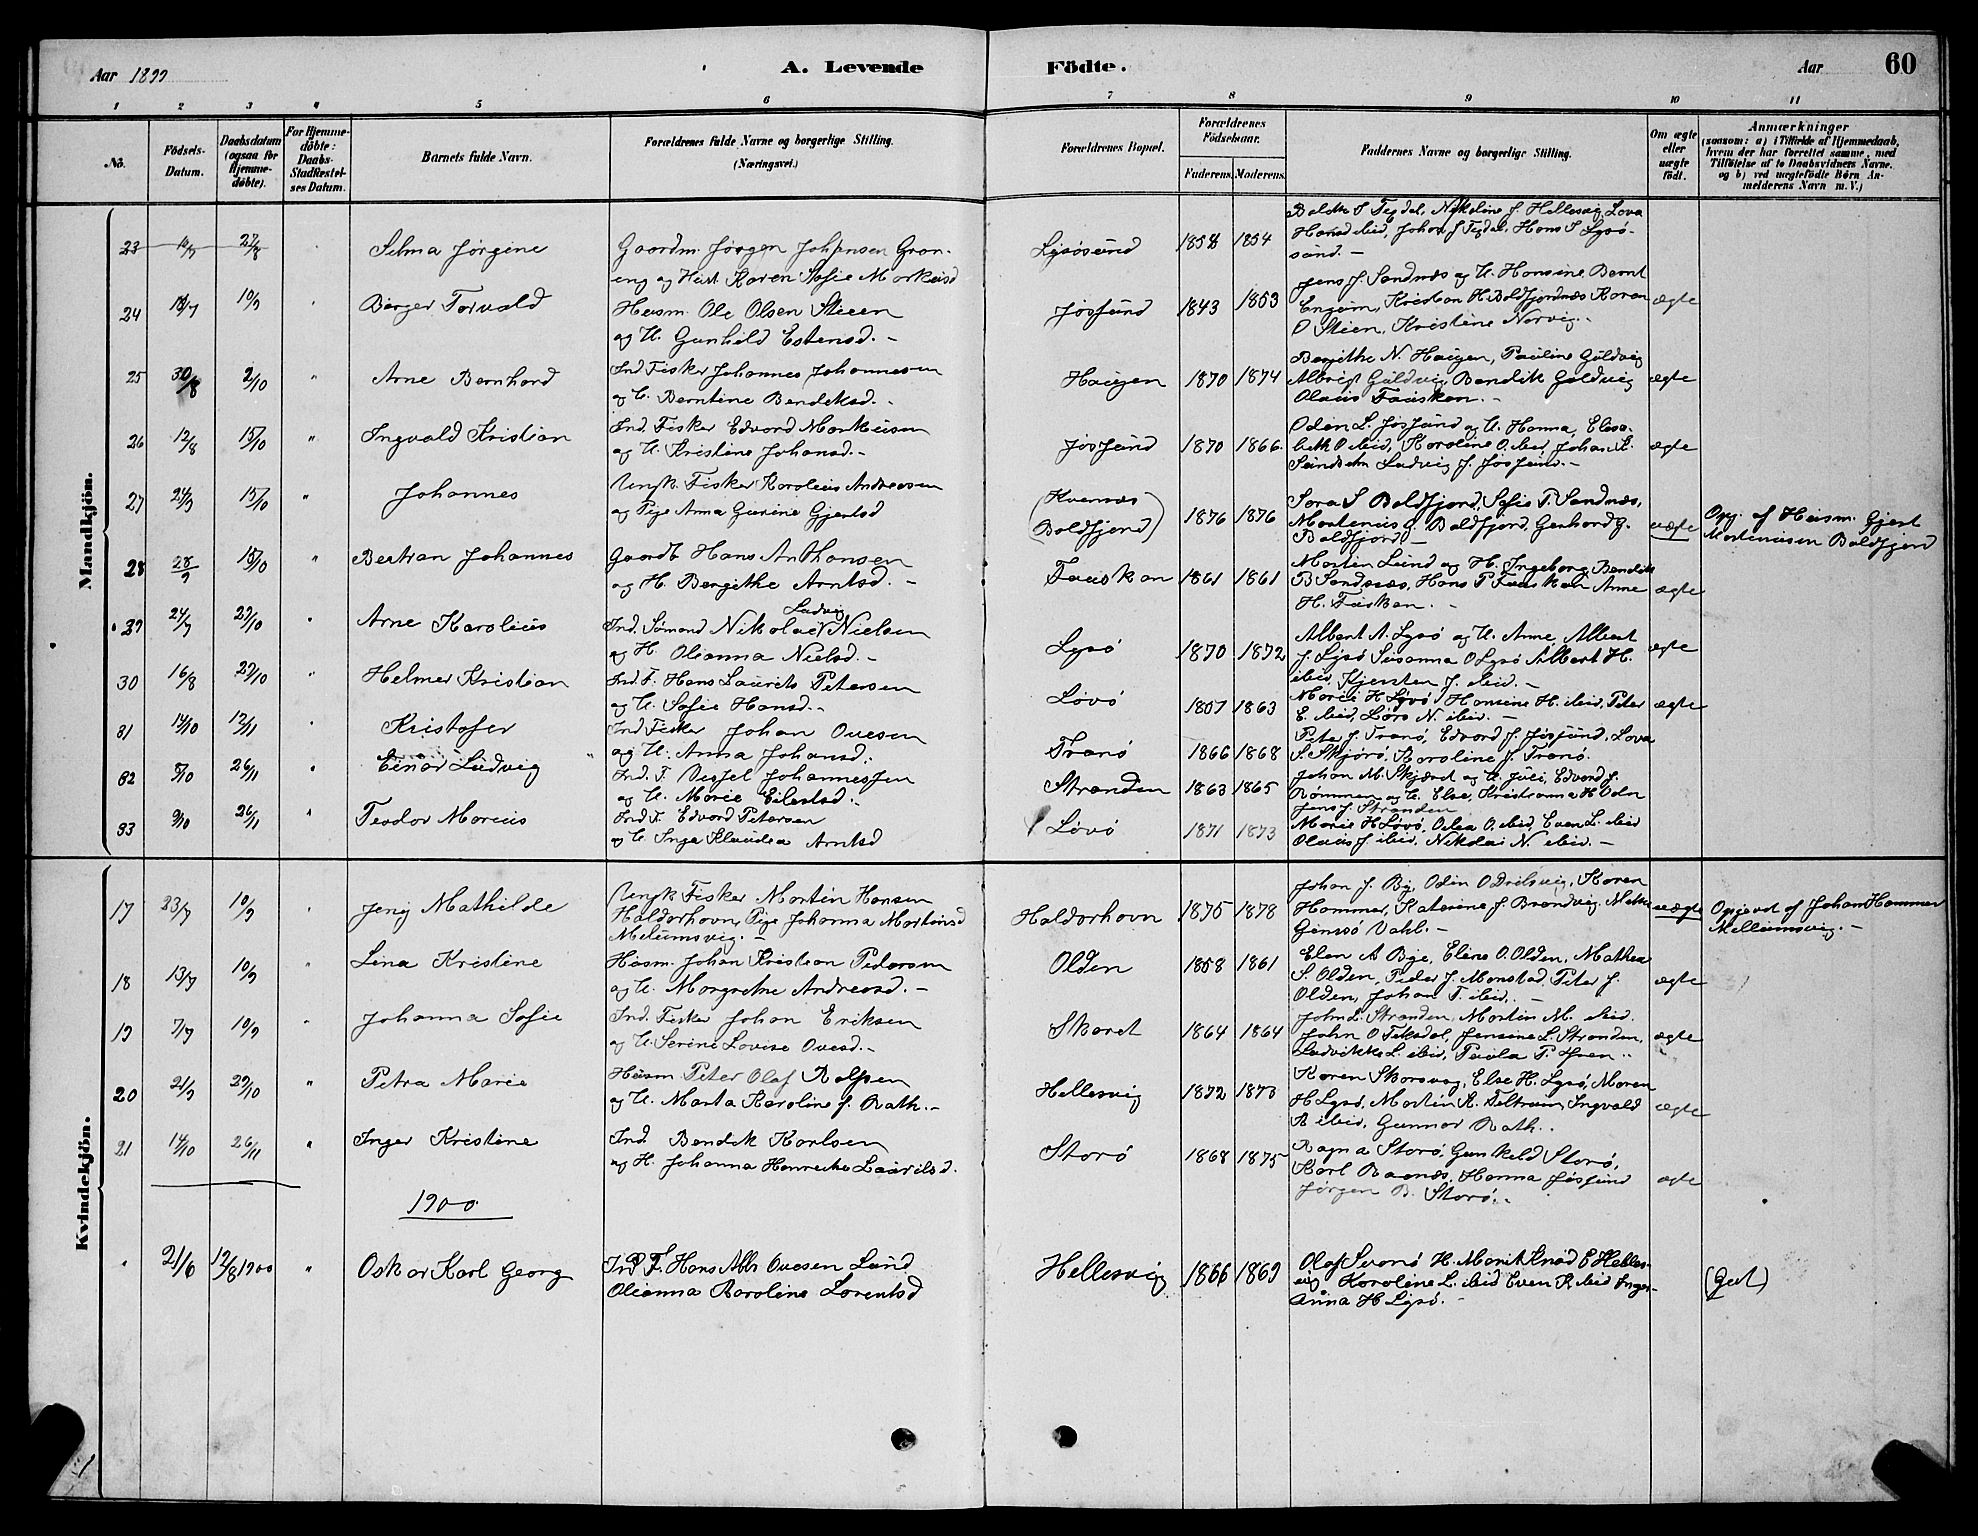 Aar 1899
A. Levende Födte.
Aar
60
1 2 3 4 5 6 7 8 9 10 11
No.
Födsels-Datum.
Daabsdatum (ogsaa for Hjemme-döbte).
For Hjemme-döbte: Daabs-Stadfæstel-ses Datum.
Barnets fulde Navn.
Forældrenes fulde Navne og borgerlige Stilling.
(Næringsvei.)
Forældrenes Bopæl.
Forældrenes Födselsaar.
Faderens. Moderens.
Faddernes Navne og borgerlige Stilling.
Om ægte eller uægte födt.
Anmærkninger
(saasom: a) i Tilfælde af Hjemmedaab, hvem der har forrettet samme, med Tilföielse af to Daabsvidners Navne, og b) ved uægtefödte Börn An-melderens Navn m. V.)
Mandkjön.
23 27/8 Selma Jørgine
Gaardm. Jørgen Johnsen Gron-
eng og Hust. Karen Sofie Markusd
Lysøsund 1858 1854
Hansd ibid, Johan J Tegdal, Hans S Lysø-
sund. -
24 10/9 Birger Torvald
Husm. Ole Olsen Steen
og H. Gunhild Estensd. -
Jøsfund 1843 1853
Jens J. Sandnæs og H. Hansine Bernt
O Steen, Kristine Nervig. -
ægte
25 30/8 2/10 Arne Bernhard
Ind Fisker Johannes Johannesen
og H. Berntine Bendiksd. -
Haugen 1870 1874
Bergithe N. Haugen, Pauline Guldvig
Albrigt Guldvig, Bendik Guldvig
Olaus Fauskan. -
ægte
26 12/8 15/10 Ingvald Kristian
Ind. Fisker Edvard Markusen
og H. Kristine Johansd. -
Jøsfund 1870 1866
Oden L. Jøsfund og H. Hanna, Elesa-
beth O ibid, Karoline O. ibid, Johan L.
Ludvig J. Jøsfund. -
ægte
27 24/9 15/10 Johannes
Ungk. Fisker Karolius Andreasen
og Pige Anna Gurine Gjertsd
(Kvernæs Boldfjord) 1876 1876
Sara S Boldfjord, Sofie T. Sandnæs,
Mortenius G. Boldfjord, Gerhard G.
Boldfjord -
uægte
Opg. af Husm. Gjert
Mortenusen Boldfjord
28 28/9 15/10 Bertran Johannes
Gaardb Hans Anthonsen
og H. Bergithe Arntsd. -
Fauskan 1861 1861
Morten Lund og H. Ingeborg, Bendik
B Sandnæs, Hans P Fauskan Anne
H. Fauskan. -
ægte
29 24/9 29/10 Arne Karolius
Ludvig
Ind. Sømand Nikolai Nielsen
og H. Olianna Nielsd. -
Lysø 1870 1872
Albert A. Lysø og H. Anne, Albert
J. Lysø Susanna O Lysø Albert H.
ibid, Kjersten J. ibid. -
ægte
30 16/8 29/10 Helmer Kristian
Ind. F. Hans Laurits Petersen
og H. Sofie Hansd. -
Løvø 1863
Marie H Løvø, Hansine H. ibid, Peter
E. ibid, Lars N. ibid. -
ægte
31 14/10 12/11 Kristofer
Ind Fisker Johan Ovesen
og H. Anna Johansd.
Tranø 1866 1868
Peter J. Tranø, Edvard J. Jøsfund, Lova
S. Skjørø, Karoline J. Tranø.
32 5/10 26/11 Einar Ludvig
Ind. F. Vessel Johannessen
og H. Marie Eilertsd. -
Stranden 1863 1865
Johan M. Skjæret og H. Juli, Edvard J.
Rømmen og H. Else, Kristianna H Oden
Jens J. Stranden
33 9/10 26/11 Teodor Marius
Ind F. Edvard Petersen
og H Inga Klaudea Arntsd
Løvø 1871 1873
Marie H Løvø, Odea O. ibid, Even L. ibid
Olaus J. ibid, Nikolai N. ibid. -
Kvindekjön.
17 23/7 10/9 Jenny Mathilde
Ungk Fisker Morten Hansen
Haldorhavn, Pige Johanna Martinsd
Melumsvig. -
Haldorhavn 1875 1878
Johan J. By, Oden O Drelsvig, Karen
Hammer, Katerine J. Brandvig, Mette
uægte
Opgivet af Johan Hammer
Mellumsvig. -
18 13/7 10/9 Lina Kristine
Husm. Johan Kristian Pedersen
og H. Margrethe Andreasd. -
Olden 1858 1861
Elen A Bye, Eline O. Olden, Mathea
S. Olden, Peder J. Monstad, Peter J.
Olden, Johan T. ibid. -
ægte
19 7/7 10/9 Johanna Sofie
Ind. Fisker Johan Eriksen
og H. Serine Lovise Ovesd. -
Skaret 1864 1864
John L. Stranden, Morten M. ibid.
John O Teksdal, Jensine L. Stranden,
Ludvikke L. ibid, Paula P.
ægte
20 21/9 29/10 Petra Marie
Husm Peter Olaf Rolfsen
og H. Marta Karoline J. Rath. -
Hellesvig 1872 1873
Karen Skarsvag, Else H. Lysø, Maren
H Lysø, Morten K. Seltrum, Ingvald
R ibid, Gunnar Rath.
ægte
21 14/10 26/11 Inger Kristine
Ind. Bendik Karlsen
og H. Johanna Henrikke Lauritsd.
Storø 1868 1875
Ragna Storø, Gunhild Storø,
Karl Ranæs, Hanna Jøsfund
Jørgen B. Storø. -
ægte
1900
21/6 12/8 1900 Oskar Karl Georg
Ind F. Hans Alb. Ovesen Lund
Olianna Karoline Lorentsd
Hellesvig 1866 1869
Karoline L. ibid Even R. ibid Inger
Anna H Lysø. -
(Gut)